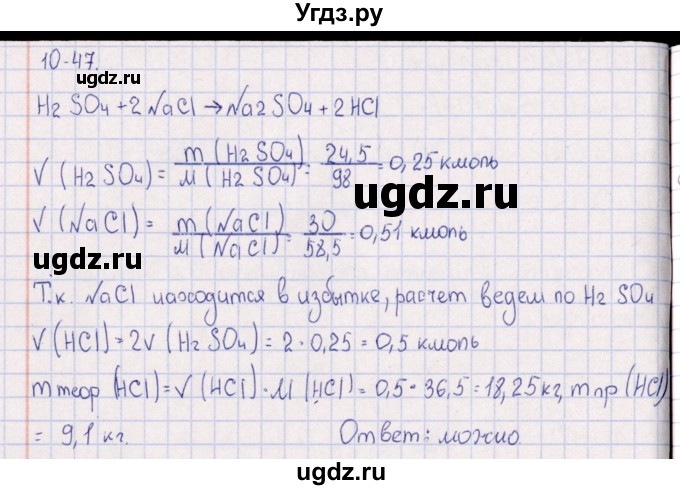 Угдз.ру
10-47.
ugdz.ru
H2SO4 + 2NaCl → Na2SO4 + 2HCl
ν (H2SO4) = m (H2SO4) / M (H2SO4) = 24,5 / 98 = 0,25 кмоль
ugdz.ru
ν (NaCl) = m (NaCl) / M (NaCl) = 30 / 58,5 = 0,51 кмоль
ugdz.ru
Т.к. NaCl находится в избытке, расчет ведем по H2SO4
ugdz.ru
ν (HCl) = 2ν (H2SO4) = 2 · 0,25 = 0,5 кмоль
ugdz.ru
m теор (HCl) = ν (HCl) · M (HCl) = 0,5 · 36,5 = 18,25 кг, m пр (HCl)
= 9,1 кг. Ответ: можно.
ugdz.ru